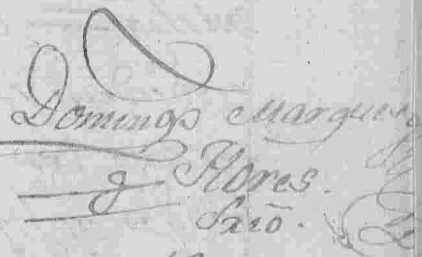 Domingo Marquez
y Flores.
Srio.